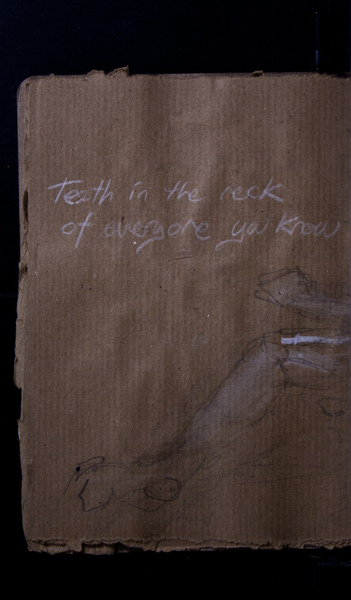 Teeth in the neck
of everyone you know